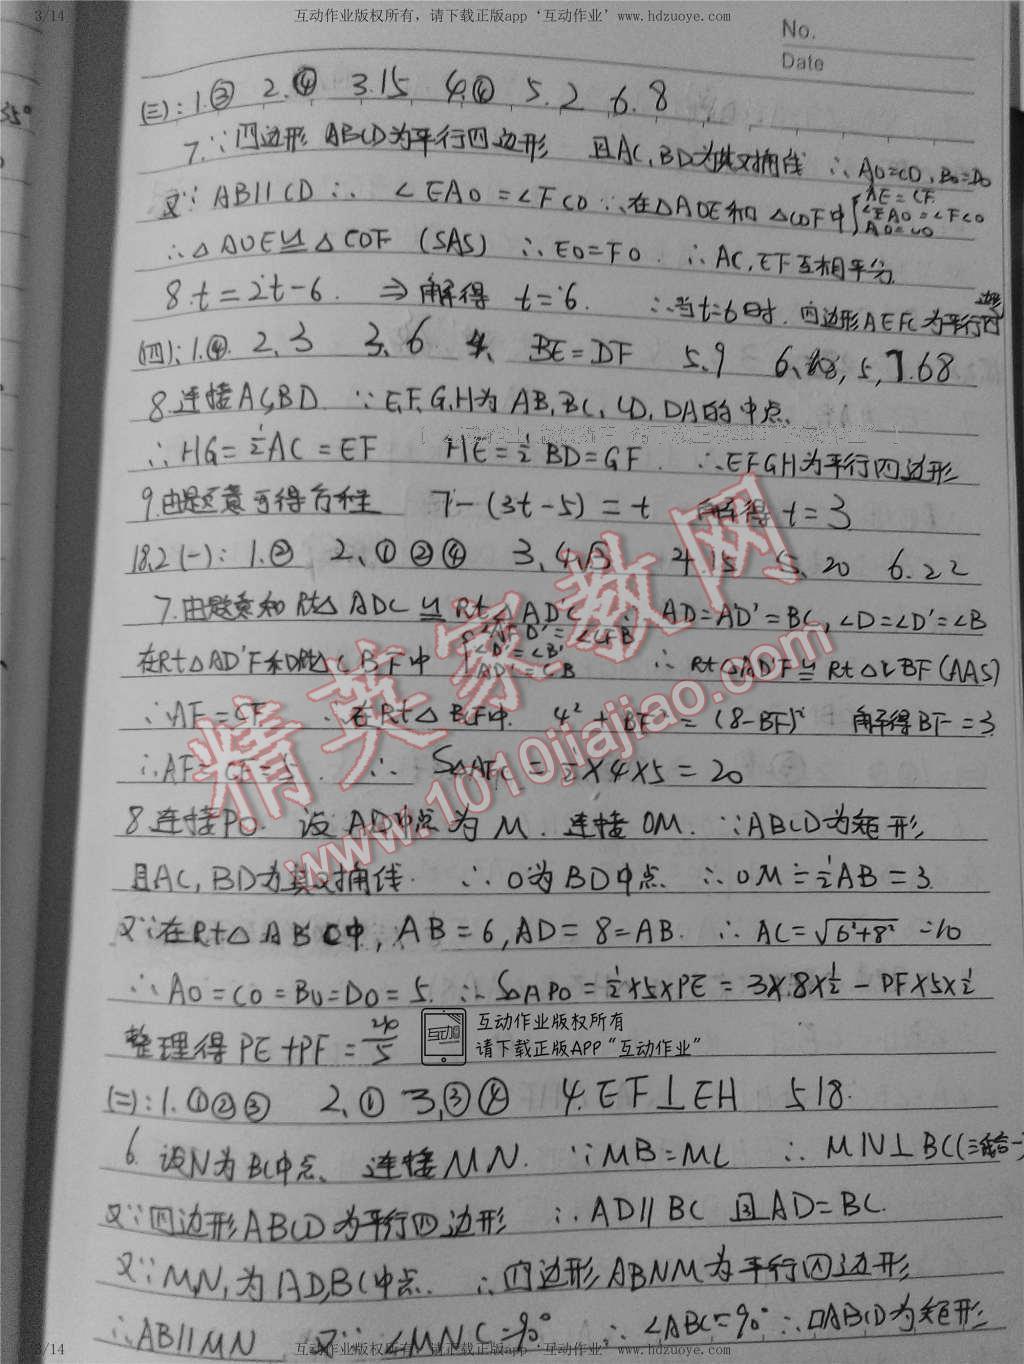 3/14 互动作业版权所有，请下载正版app‘互动作业’www.hdzuoye.com 3/14
No.
Date
35°
(三):1.③ 2.④ 3.15 4.④ 5.2 6.8
7.∵四边形ABCD为平行四边形 且AC,BD为其对角线 ∴AO=CO,BO=DO
又∵AB∥CD ∴∠EAO=∠FCO ∵在△AOE和△COF中{AE=CF ∠EAO=∠FCO AO=CO
∴△AOE≌△COF (SAS) ∴EO=FO. ∴AC,EF互相平分
8.t=2t-6. ⇒解得 t=6. ∴当t=6时.四边形AEFC为平行四边形
(四):1.④. 2,3 3,6 4、BE=DF 5.9 6、 5, 7.68
8.连接AC,BD. ∵E,F,G,H为AB,BC,CD,DA的中点、
∴HG=½AC=EF HE=½BD=GF. ∴EFGH为平行四边形
9.由题意可得方程 7-(3t-5)=t 解得t=3
18.2(一):1.② 2、①②④ 3,4√3 4.15 5、20 6.22
7.由题意知Rt△ADC≌Rt△AD'C ∴AD=AD'=BC,∠D=∠D'=∠B
在Rt△AD'F和Rt△CBF中 ∠D'=∠B AD'=CB ∴Rt△AD'F≌Rt△CBF(AAS)
∴AF=CF ∴在Rt△BCF中. 4²+BF²=(8-BF)² 解得BF=3.
∴AF=CF=5. ∴S△AFC=½×4×5=20
8.连接PO. 设AD中点为M.连接OM.∵ABCD为矩形
且AC,BD为其对角线. ∴O为BD中点. ∴OM=½AB=3.
又∵在Rt△ABC中,AB=6,AD=8=AB. ∴AC=√6²+8²=10
∴AO=CO=BO=DO=5. ∴S△APO=½×5×PE=3×8×½-PF×5×½
整理得PE+PF=
互动
互动作业版权所有
请下载正版APP“互动作业”
(二):1.①②③ 2、① 3,③④ 4.EF⊥EH 5.18.
6.设N为BC中点、连接MN. ∵MB=MC ∴MN⊥BC(三线合一)
又∵四边形ABCD为平行四边形 ∴AD∥BC 且AD=BC.
又∵M,N,为AD,BC中点. ∴四边形ABNM为平行四边形
∴AB∥MN 又∵∠MNC=90° ∴∠ABC=90°∴□ABCD为矩形
精英家教网
www.1010jiajiao.com
3/14 互动作业版权所有，请下载正版app‘互动作业’www.hdzuoye.com 3/14